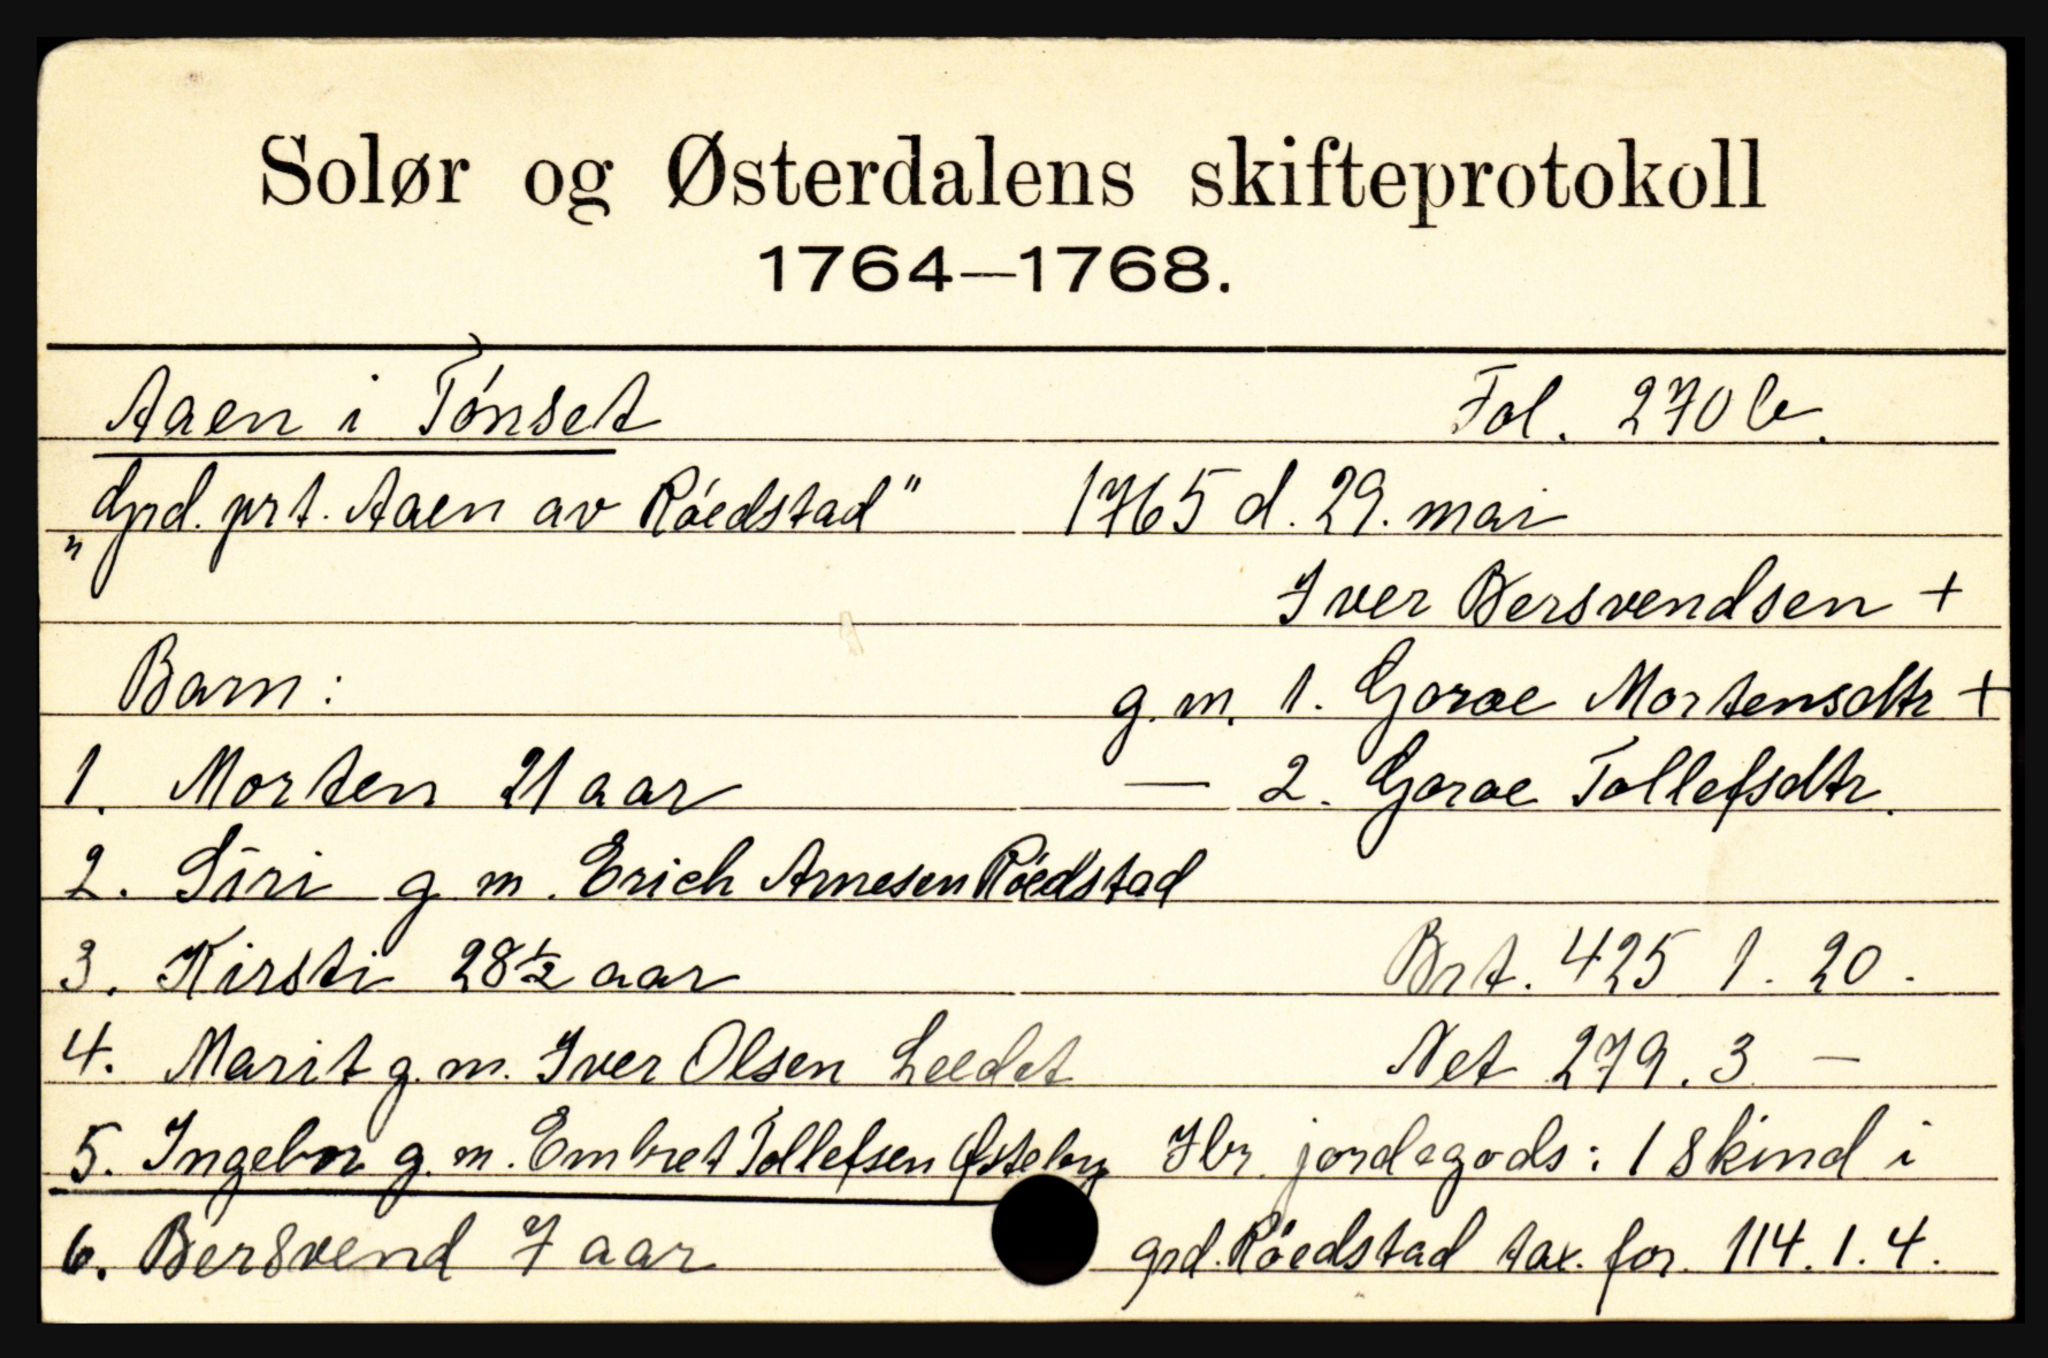 Solør og Østerdalens skifteprotokoll
1764—1768.
Aaen i Tónset Fol. 270 b.
"Grd. prt. Aaen av Róedstad" 1765 d. 29. mai
Iver Bersvendsen +
Barn: g. m. 1. Goroe Mortensdtr +
1. Morten 21 aar — 2. Goroe Tollefsdtr.
2. Siri g. m. Erich Arnesen Róedstad
3. Kirsti 28½ aar Brt. 425 1. 20.
4. Marit g. m. Iver Olsen Leedet Net 279. 3 —
5. Ingebor g. m. Embret Tollefsen Østeby Ibr. jordegods: 1 skind i
6. Bersvend 7 aar grd. Róedstad tax. for 114. 1. 4.